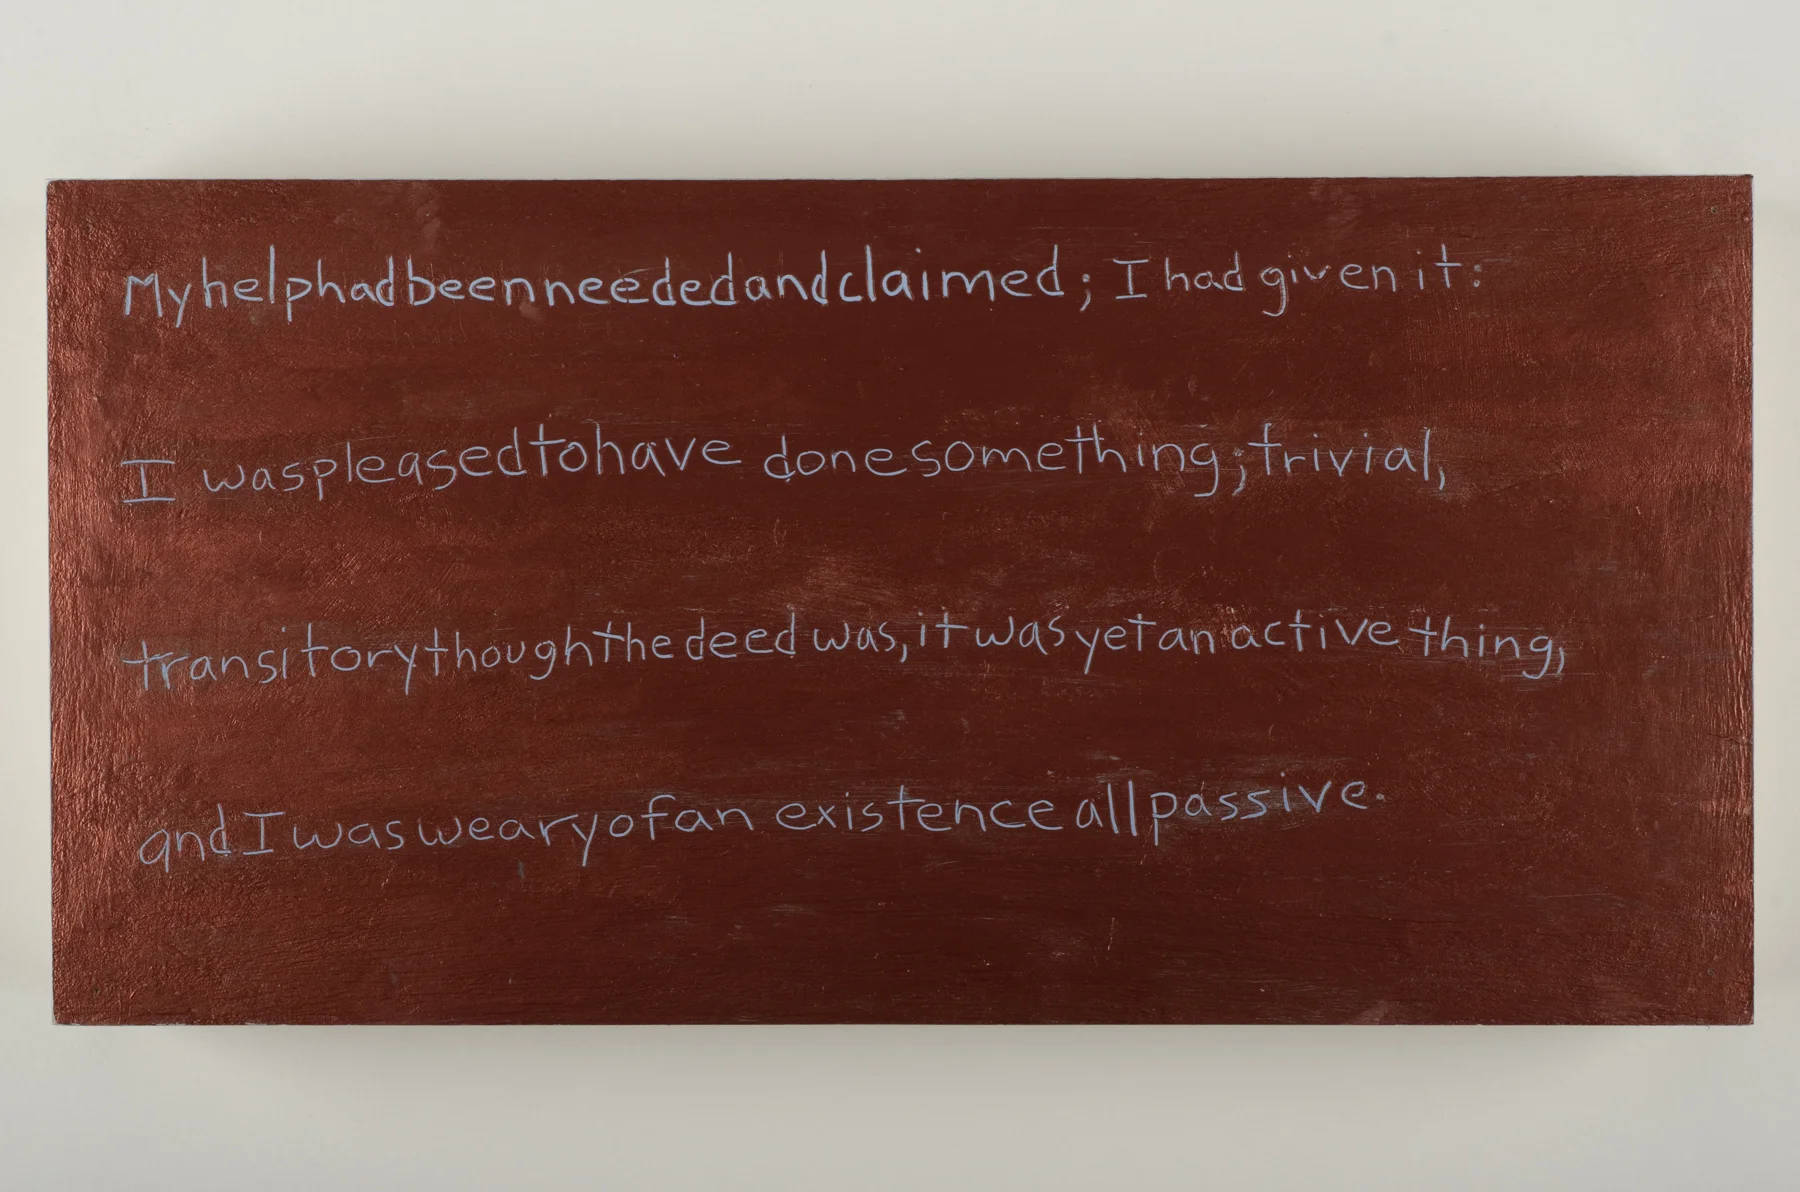 My help had been needed and claimed; I had given it:
I was pleased to have done something; trivial,
transitory though the deed was, it was yet an active thing,
and I was weary of an existence all passive.